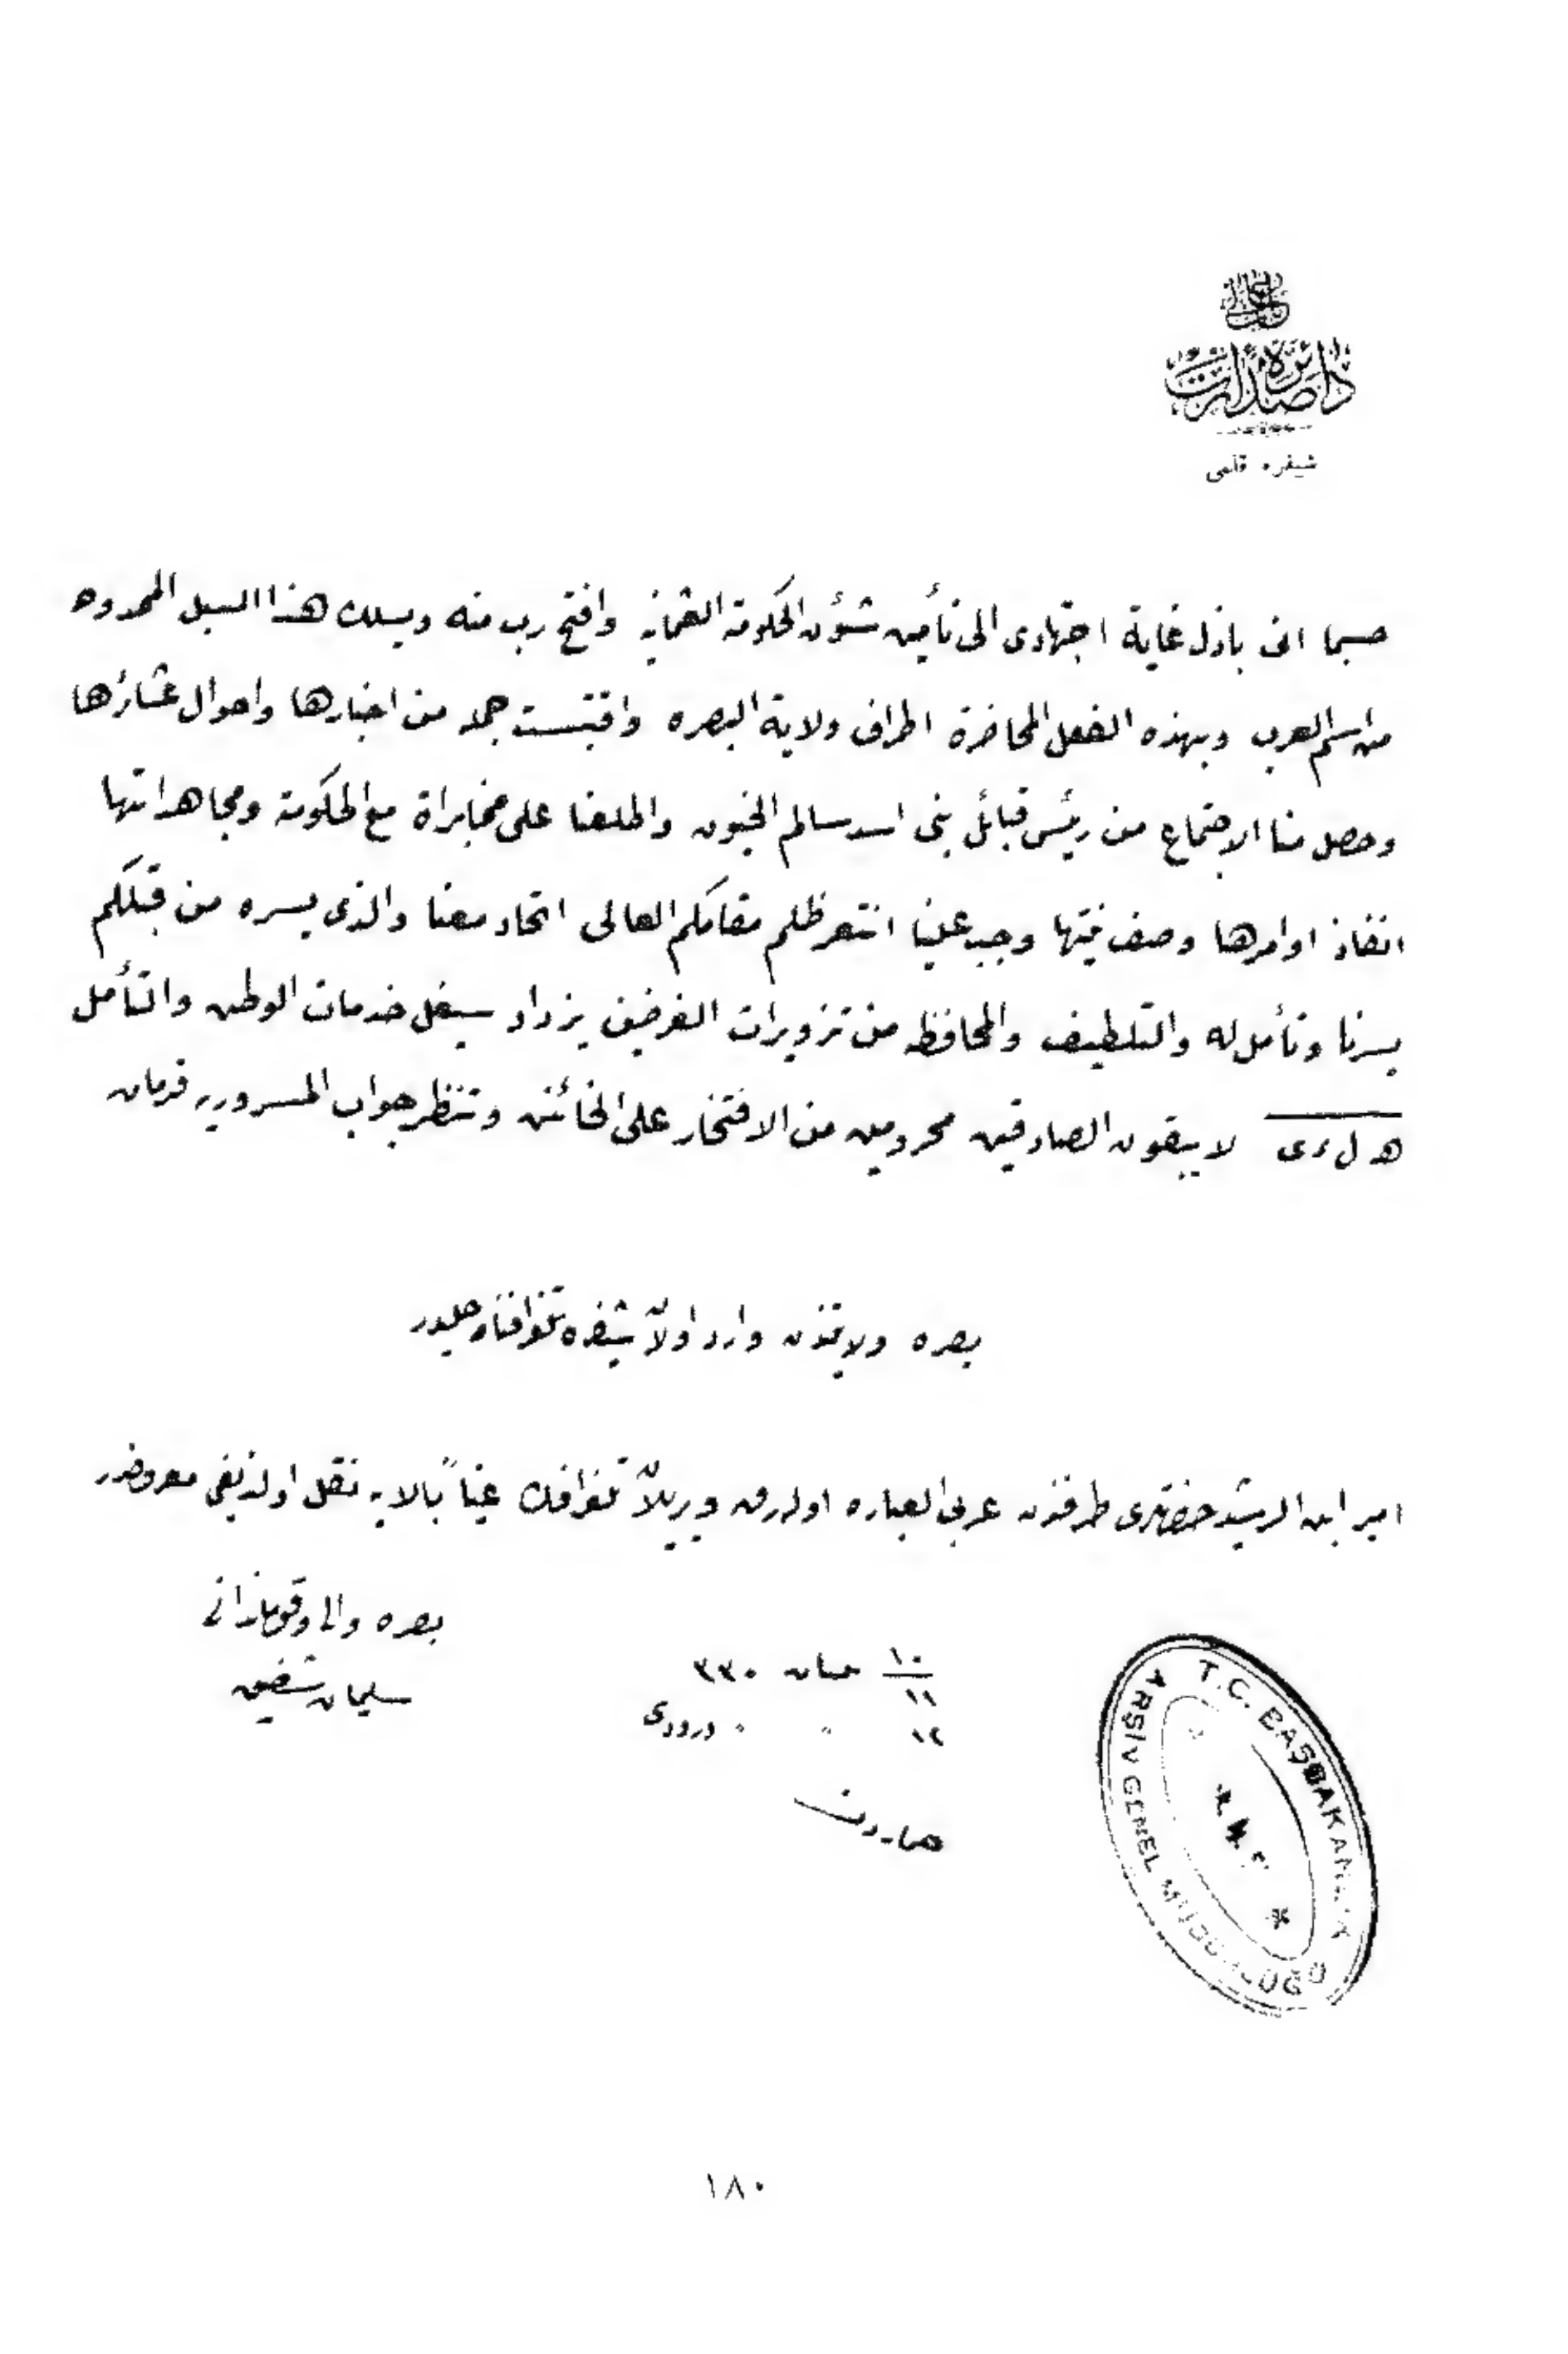 باب عالی
دائرۀ صدارت
شيفره قلمی
حسبما انی باذل غاية اجتهادی الی تأمين شؤن الحكومة العثمانيه وافتح رب منه ويسلك هذا السبيل الممدوح
من اسم العرب وبهذه الفعل المحاضرة اطراف ولاية البصره واقتبست جملا من اخبارها واحوال عشائرها
وحصل منا الاجتماع من رئيس قبائل بنی اسد سالم الخيون واطلعنا علی مخابراة مع الحكومة ومجاهداتها
انفاذ اوامرها وصف نيتها وجب علينا مقامكم العالی اتحاد معنا والذی يسره من قبلكم
يسرنا ونأمل له والتلطيف والمحافظه من تزويرات الغرضين يزداد سيفل خدمات الوطن والتأمل
لا يبقون الصادقين محرومين من الافتخار علی الخائنين وتنتظر جواب المسروريه فرمان
بصره ولايتندن وارد اولان شيفره تلغرافنامه حليدر
امير ابن الرشيد حضرتلری طرفندن عربی العباره اولەرق ويريلان تلغرافك عينا بالايه نقل اولنديغی معروضدر
بصره والی وقوماندانی
سليمان شفيق
١٠ / ١١ نيسان ٣٣٠
١٢ " " ورودی
T.C. BAŞBAKANLIK
ARŞİV GENEL MÜDÜRLÜĞÜ
١٨٠